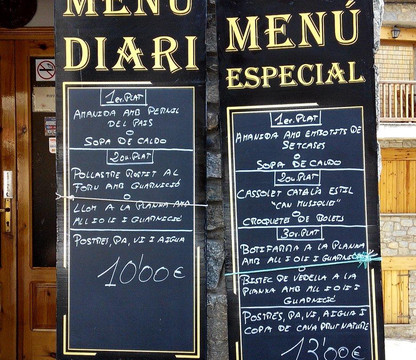 MENÚ
DIARI
1er.PLAT
AMANIDA AMB PERNIL
DEL PAÍS
O
SOPA DE CALDO
2on.PLAT
POLLASTRE ROSTIT AL
TORN AMB GUARNICIÓ
O
LLOM A LA PLANXA AMB
ALLIOLI I GUARNICIÓ
POSTRES, PA, VI I AIGUA
10'00€
MENÚ
ESPECIAL
1er.PLAT
AMANIDA AMB EMBOTITS DE
SETCASES
O
SOPA DE CALDO
2on.PLAT
CASSOLET CATALÀ ESTIL
O
CROQUETES DE BOLETS
3on.PLAT
BOTIFARRA A LA PLANXA
AMB ALLIOLI I GUARNICIÓ
O
BISTEC DE VEDELLA A LA
PLANXA AMB ALLIOLI I
GUARNICIÓ
POSTRES, PA, VI, AIGUA I
COPA DE CAVA BRUT NATURE
13'00€